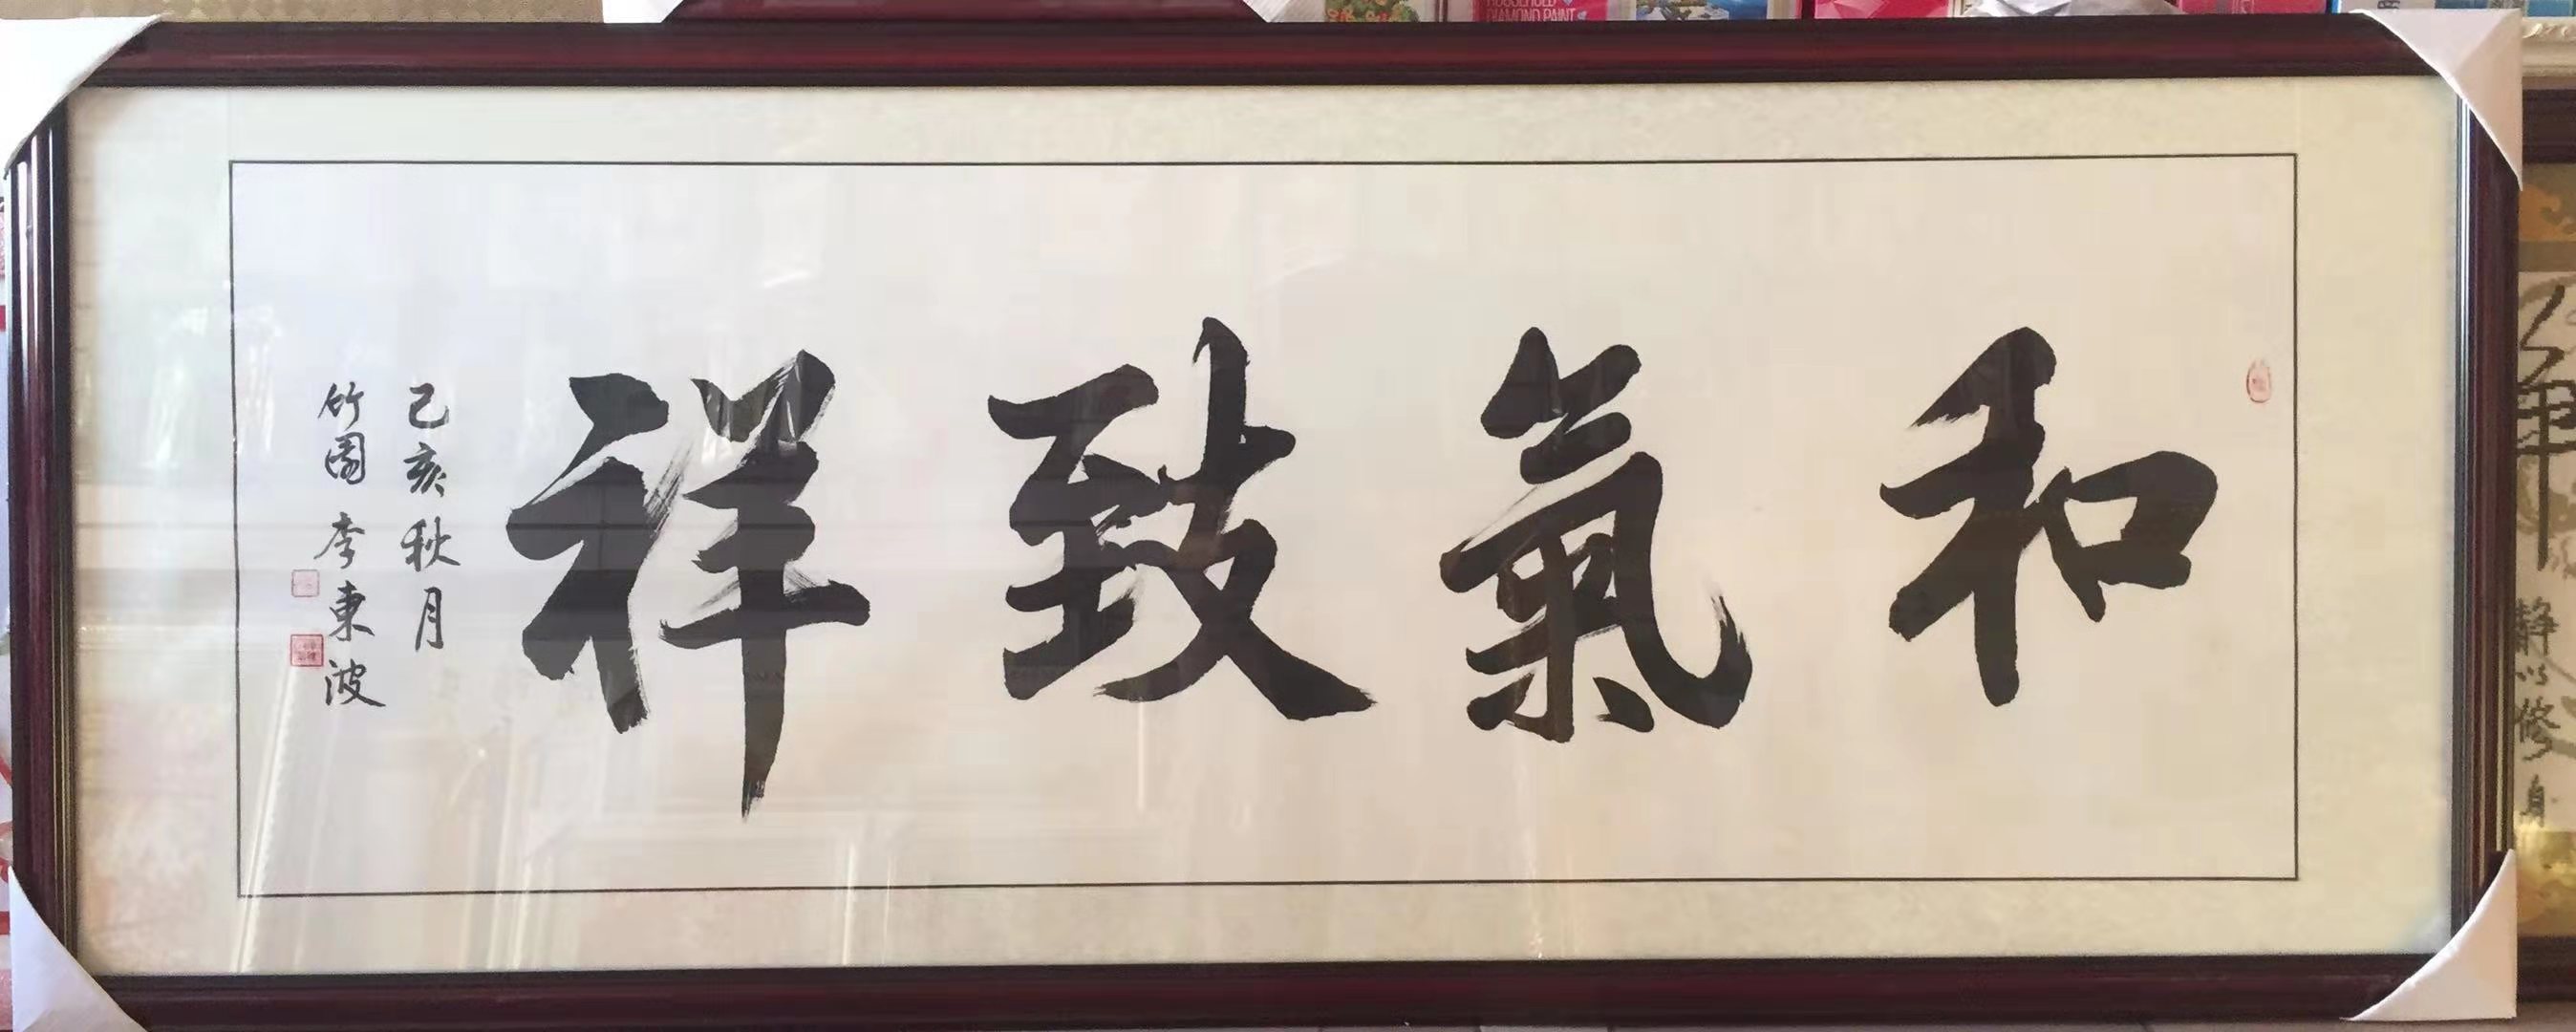 和氣致祥
己亥秋月
竹園 李東波
HOUSEHOLD
DIAMOND PAINT
静以修身